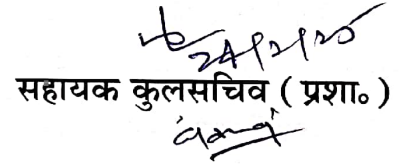 24/2/25
सहायक कुलसचिव ( प्रशा० )